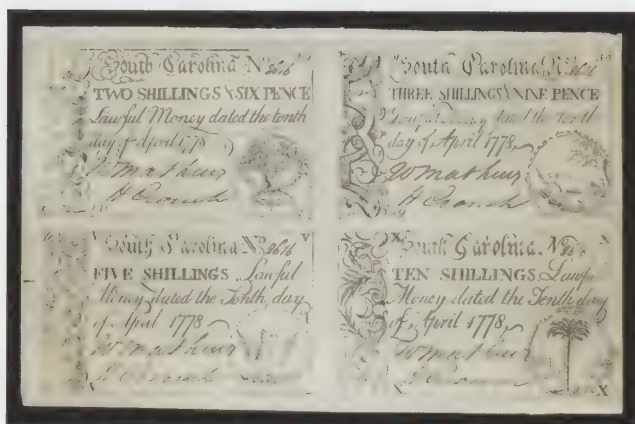 South Carolina No 2616
TWO SHILLINGS & SIX PENCE
Lawful Money dated the tenth
day of April 1778
Wmathews
H Crouch
South Carolina No
THREE SHILLINGS NINE PENCE
the tenth
day of April 1778
Wmathews
H Crouch
South Carolina No 2616 V
FIVE SHILLINGS Lawful
Money dated the Tenth day
of April 1778
Wmathews
X South Carolina. No
TEN SHILLINGS Lawful
Money dated the Tenth day
of April 1778
Wmathews
X